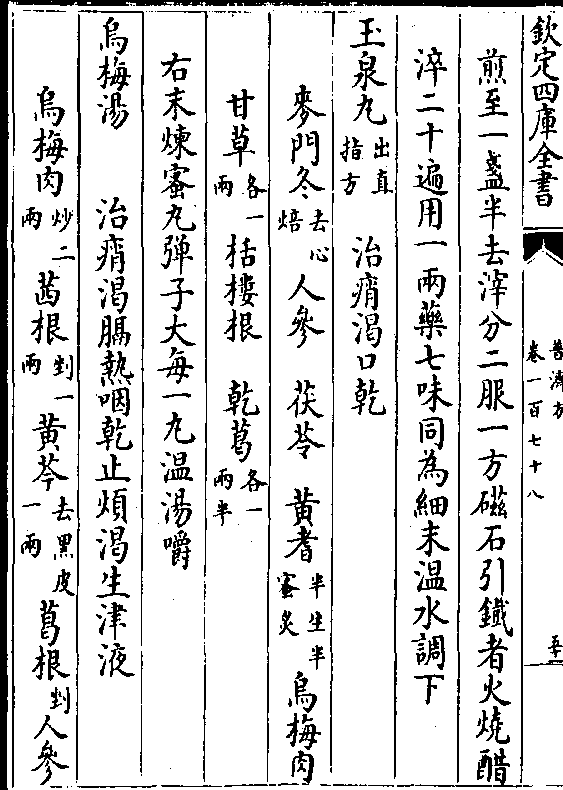 欽定四庫全書
普濟方
卷一百七十八
五十
煎至一盞半去滓分二服一方磁石引鐵者火燒醋
淬二十遍用一兩藥七味同為細末温水調下
玉泉丸出直指方　治痟渴口乾
麥門冬去心焙　人參　茯苓　黄耆半生半蜜炙　烏梅肉
甘草各一兩　栝樓根　乾葛各一兩半
右末煉蜜丸彈子大每一丸温湯嚼
烏梅湯　治痟渴膈熱咽乾止煩渴生津液
烏梅肉炒二兩　茜根剉一兩　黄芩去黑皮一兩　葛根剉　人參